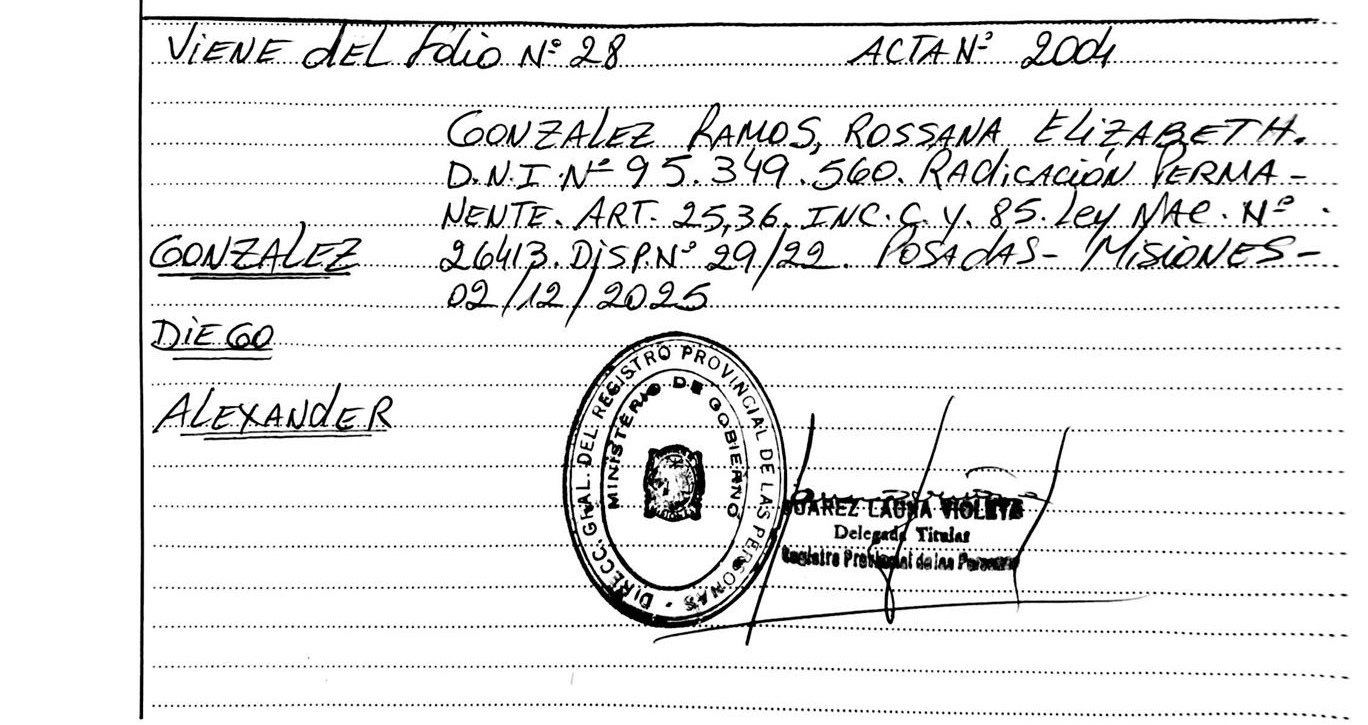 ViENE dEL folio Nº 28 ACTA Nº 2004
GONZALEZ RAMOS, ROSSANA ELiZABETH.
D.N.I Nº 95.349.560. RAdiCACióN PERMA-
NENTE. ART. 25,36. INC. C. Y. 85. Ley NAC. Nº
GONZALEZ 26413. DiSP. Nº 29/22. POSAdAS- MiSiONES-
02/12/2025
DiEGO
ALEXANdER
DIRECC. GRAL. DEL REGISTRO PROVINCIAL DE LAS PERSONAS
MINISTERIO DE GOBIERNO
VIOLETA
Delegada Titular
Registro Provincial de las Personas